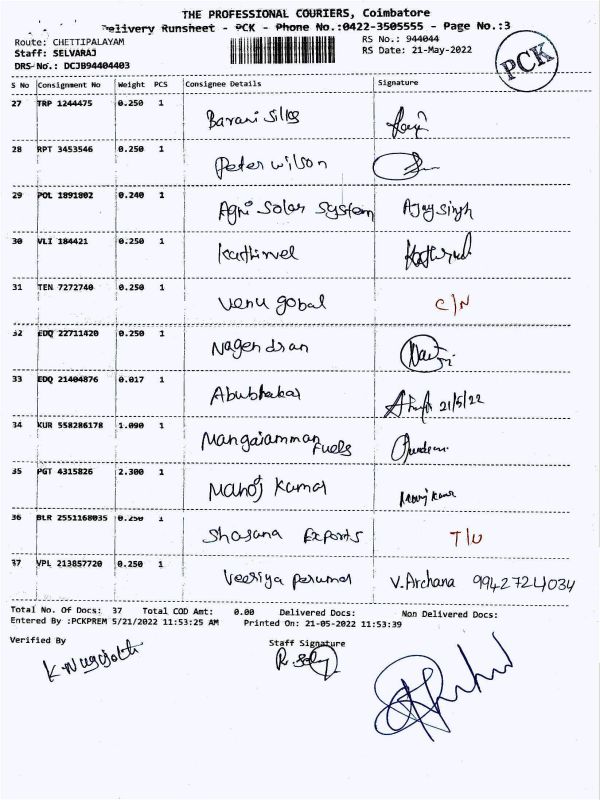 THE PROFESSIONAL COURIERS, Coimbatore
Delivery Runsheet - PCK - Phone No.:0422-3505555 - Page No.:3
Route: CHETTIPALAYAM RS No.: 944044
Staff: SELVARAJ RS Date: 21-May-2022
DRS-No.: DCJB94404403
PCK
S No Consignment No Weight PCS Consignee Details Signature
27 TRP 1244475 0.250 1 Barani Silks
28 RPT 3453546 0.250 1 Peter Wilson
29 POL 1891802 0.240 1 Agni Solar System Ajay Singh
30 VLI 184421 0.250 1 Kathirvel
31 TEN 7272740 0.250 1 Venu gobal C/N
32 EDQ 22711420 0.250 1 Nagendran
33 EDQ 21404876 0.017 1 Abubhakar 21/5/22
34 KUR 558286178 1.090 1 Mangaiamman Fuels
35 PGT 4315826 2.300 1 Manoj Kumar
36 BLR 2551168035 0.250 1 Shasana Exports T/U
37 VPL 213857720 0.250 1 Veeriya perumal V.Archana 9942724034
Total No. Of Docs: 37 Total COD Amt: 0.00 Delivered Docs: Non Delivered Docs:
Entered By :PCKPREM 5/21/2022 11:53:25 AM Printed On: 21-05-2022 11:53:39
Verified By Staff Signature